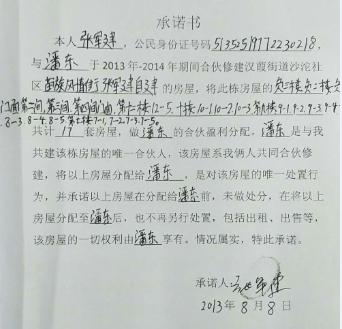 承诺书
本人张军建，公民身份证号码
与潘东于2013年-2014年期间合伙修建汉葭街道沙沱社
区苗族风情街张军建自建的房屋，将此栋房屋的负一楼负二楼
门面第二间，第三间，第四间门面，第十二楼12-5，十楼10-1，10-2，10-3
8-3，8-4，8-5，7-1，7-2，7-3
共计19套房屋，做潘东的合伙盈利分配，潘东是与我
共建该栋房屋的唯一合伙人，该房屋系我俩人共同合伙修
建，将以上房屋分配给潘东，是对该房屋的唯一处置行
为，并承诺以上房屋在分配给潘东前，未做处分，在将以上
房屋分配至潘东后，也不再另行处置，包括出租、出售等，
该房屋的一切权利由潘东享有。情况属实，特此承诺。
承诺人：
2013年8月8日